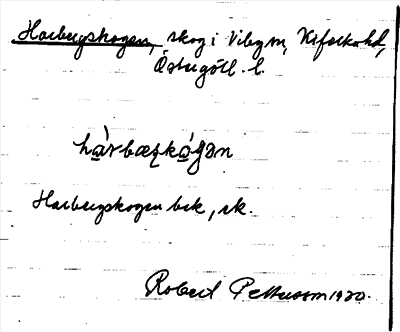 Harbergskogen, skog i Viby sn, Vifolka hd,
Östergötl. l.
hàrbæʂkógən
Harbergskogen bek, sk.
Robert Pettersson 1920.